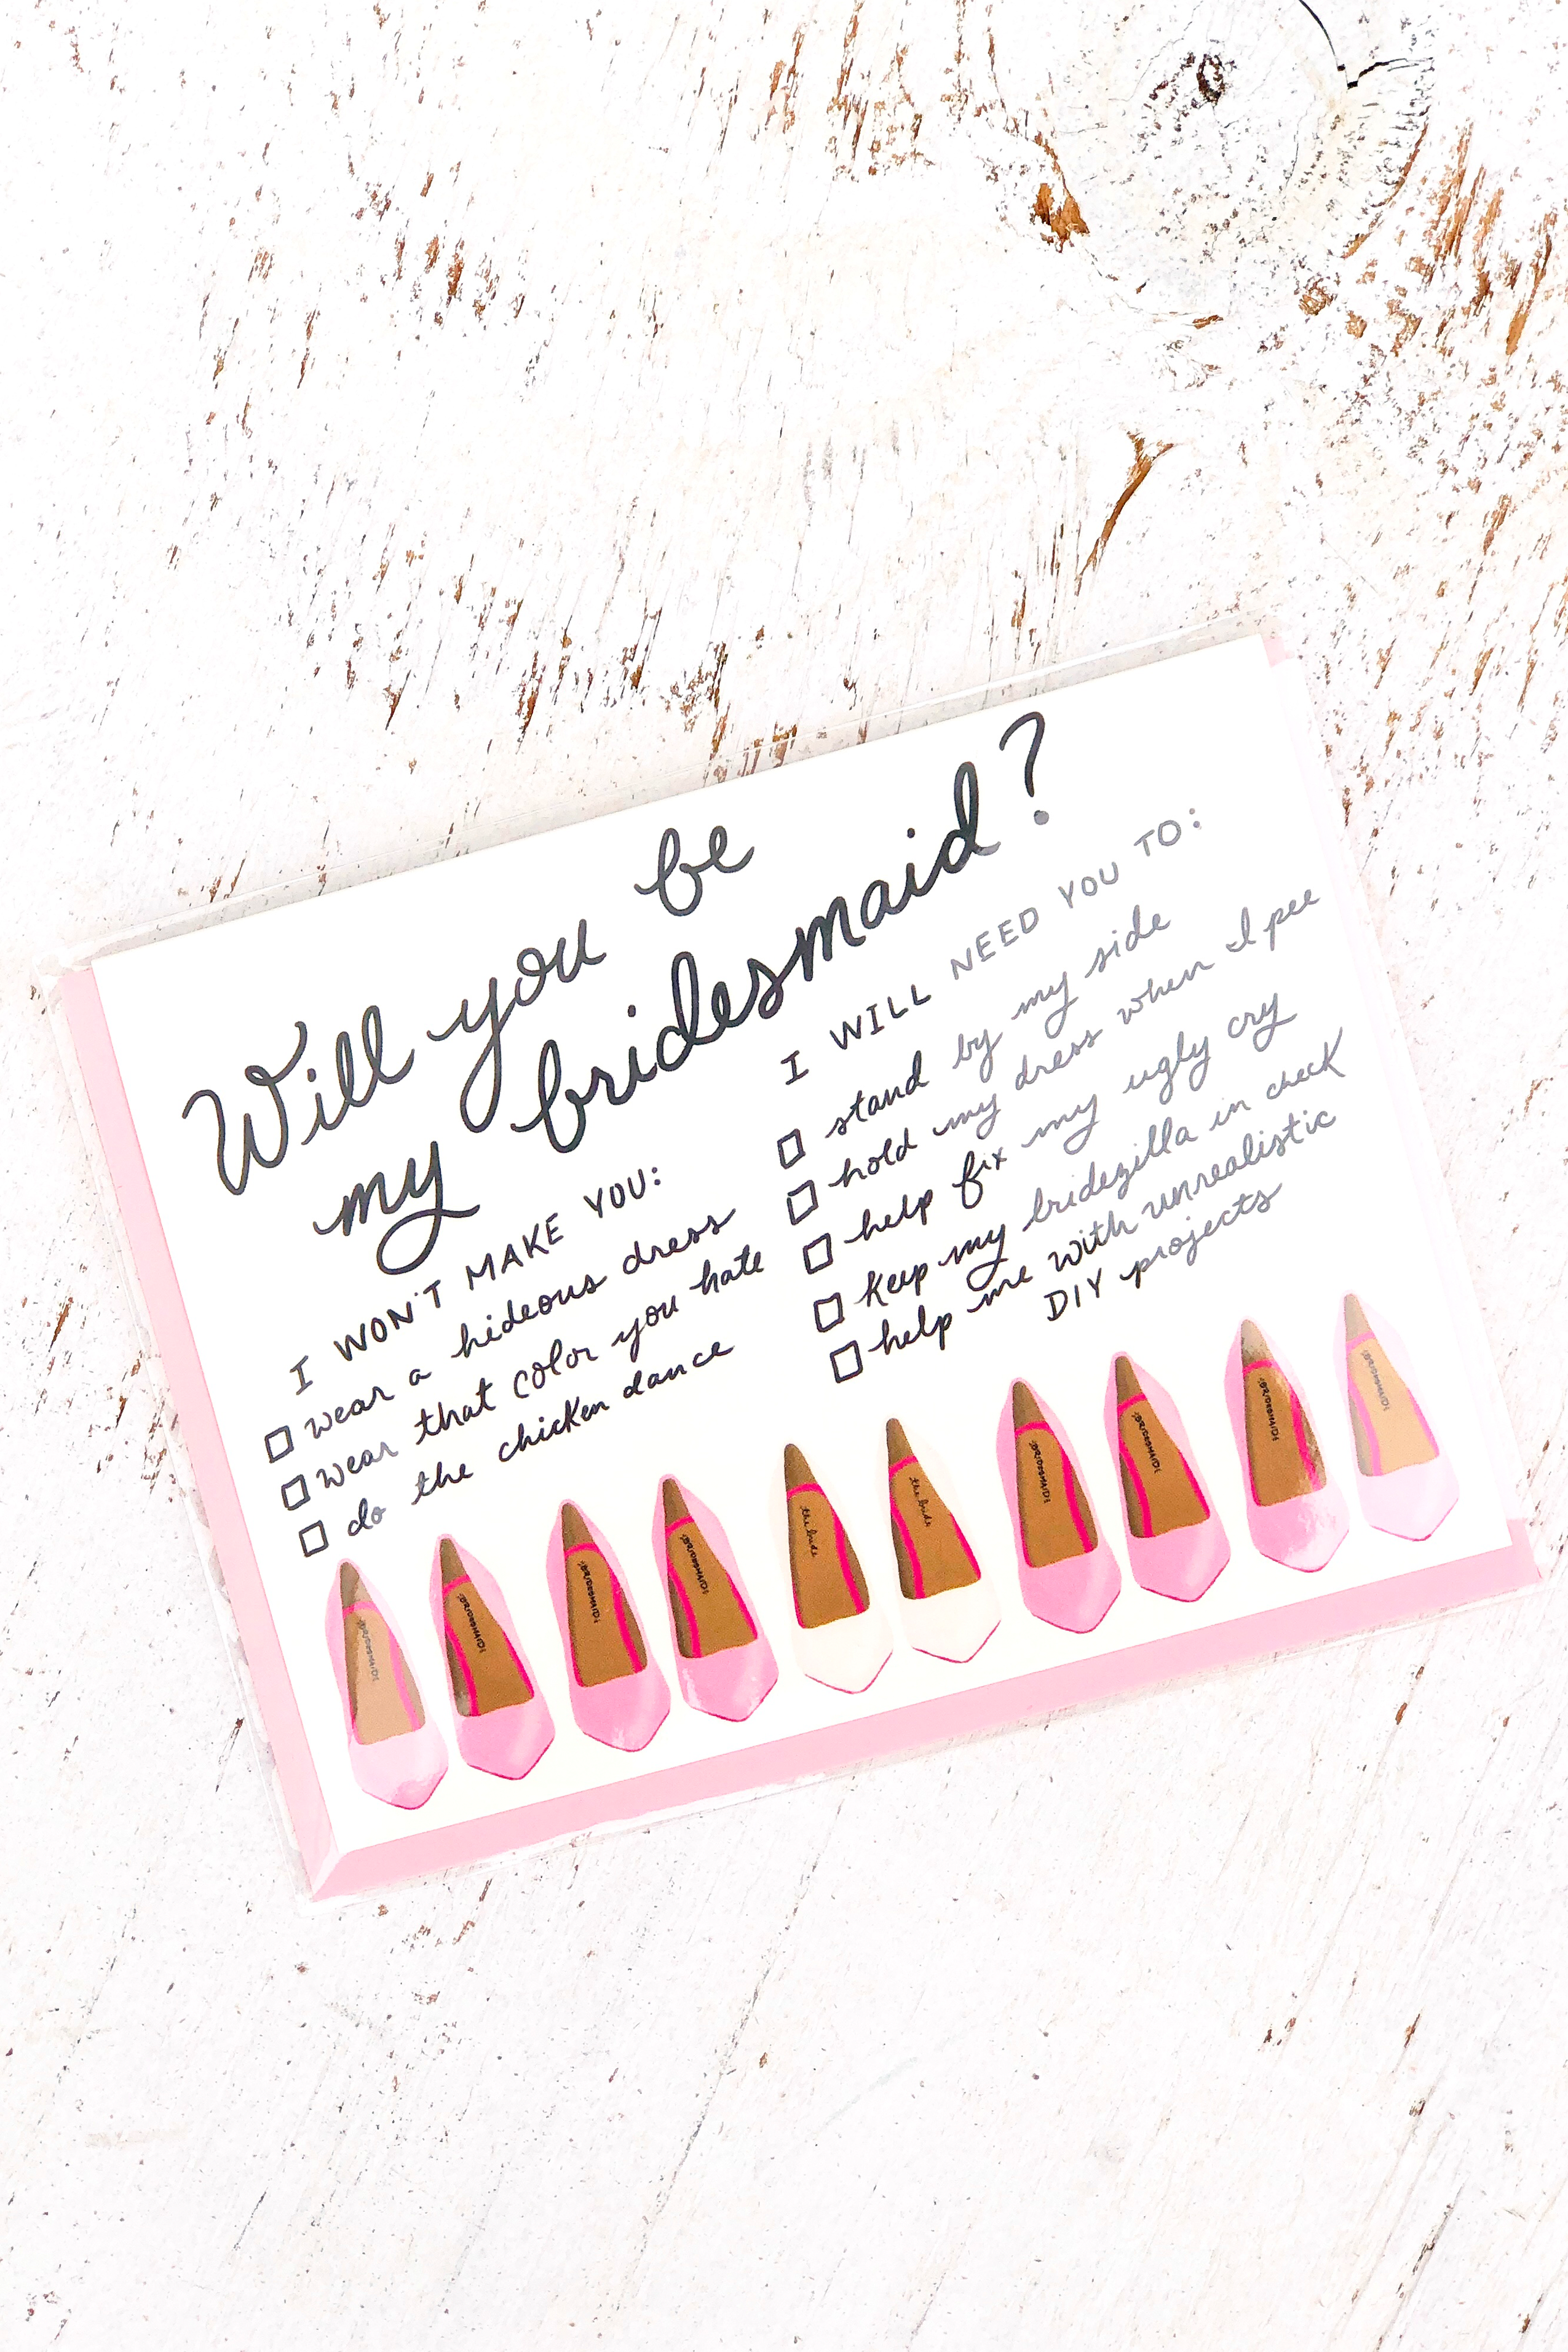 Will you be
my bridesmaid?
I WON'T MAKE YOU:
wear a hideous dress
wear that color you hate
do the chicken dance
I WILL NEED YOU TO:
stand by my side
hold my dress when I pee
help fix my ugly cry
keep my bridezilla in check
help me with unrealistic
DIY projects
BRIDESMAID
BRIDESMAID
BRIDESMAID
BRIDESMAID
the bride
the bride
BRIDESMAID
BRIDESMAID
BRIDESMAID
BRIDESMAID